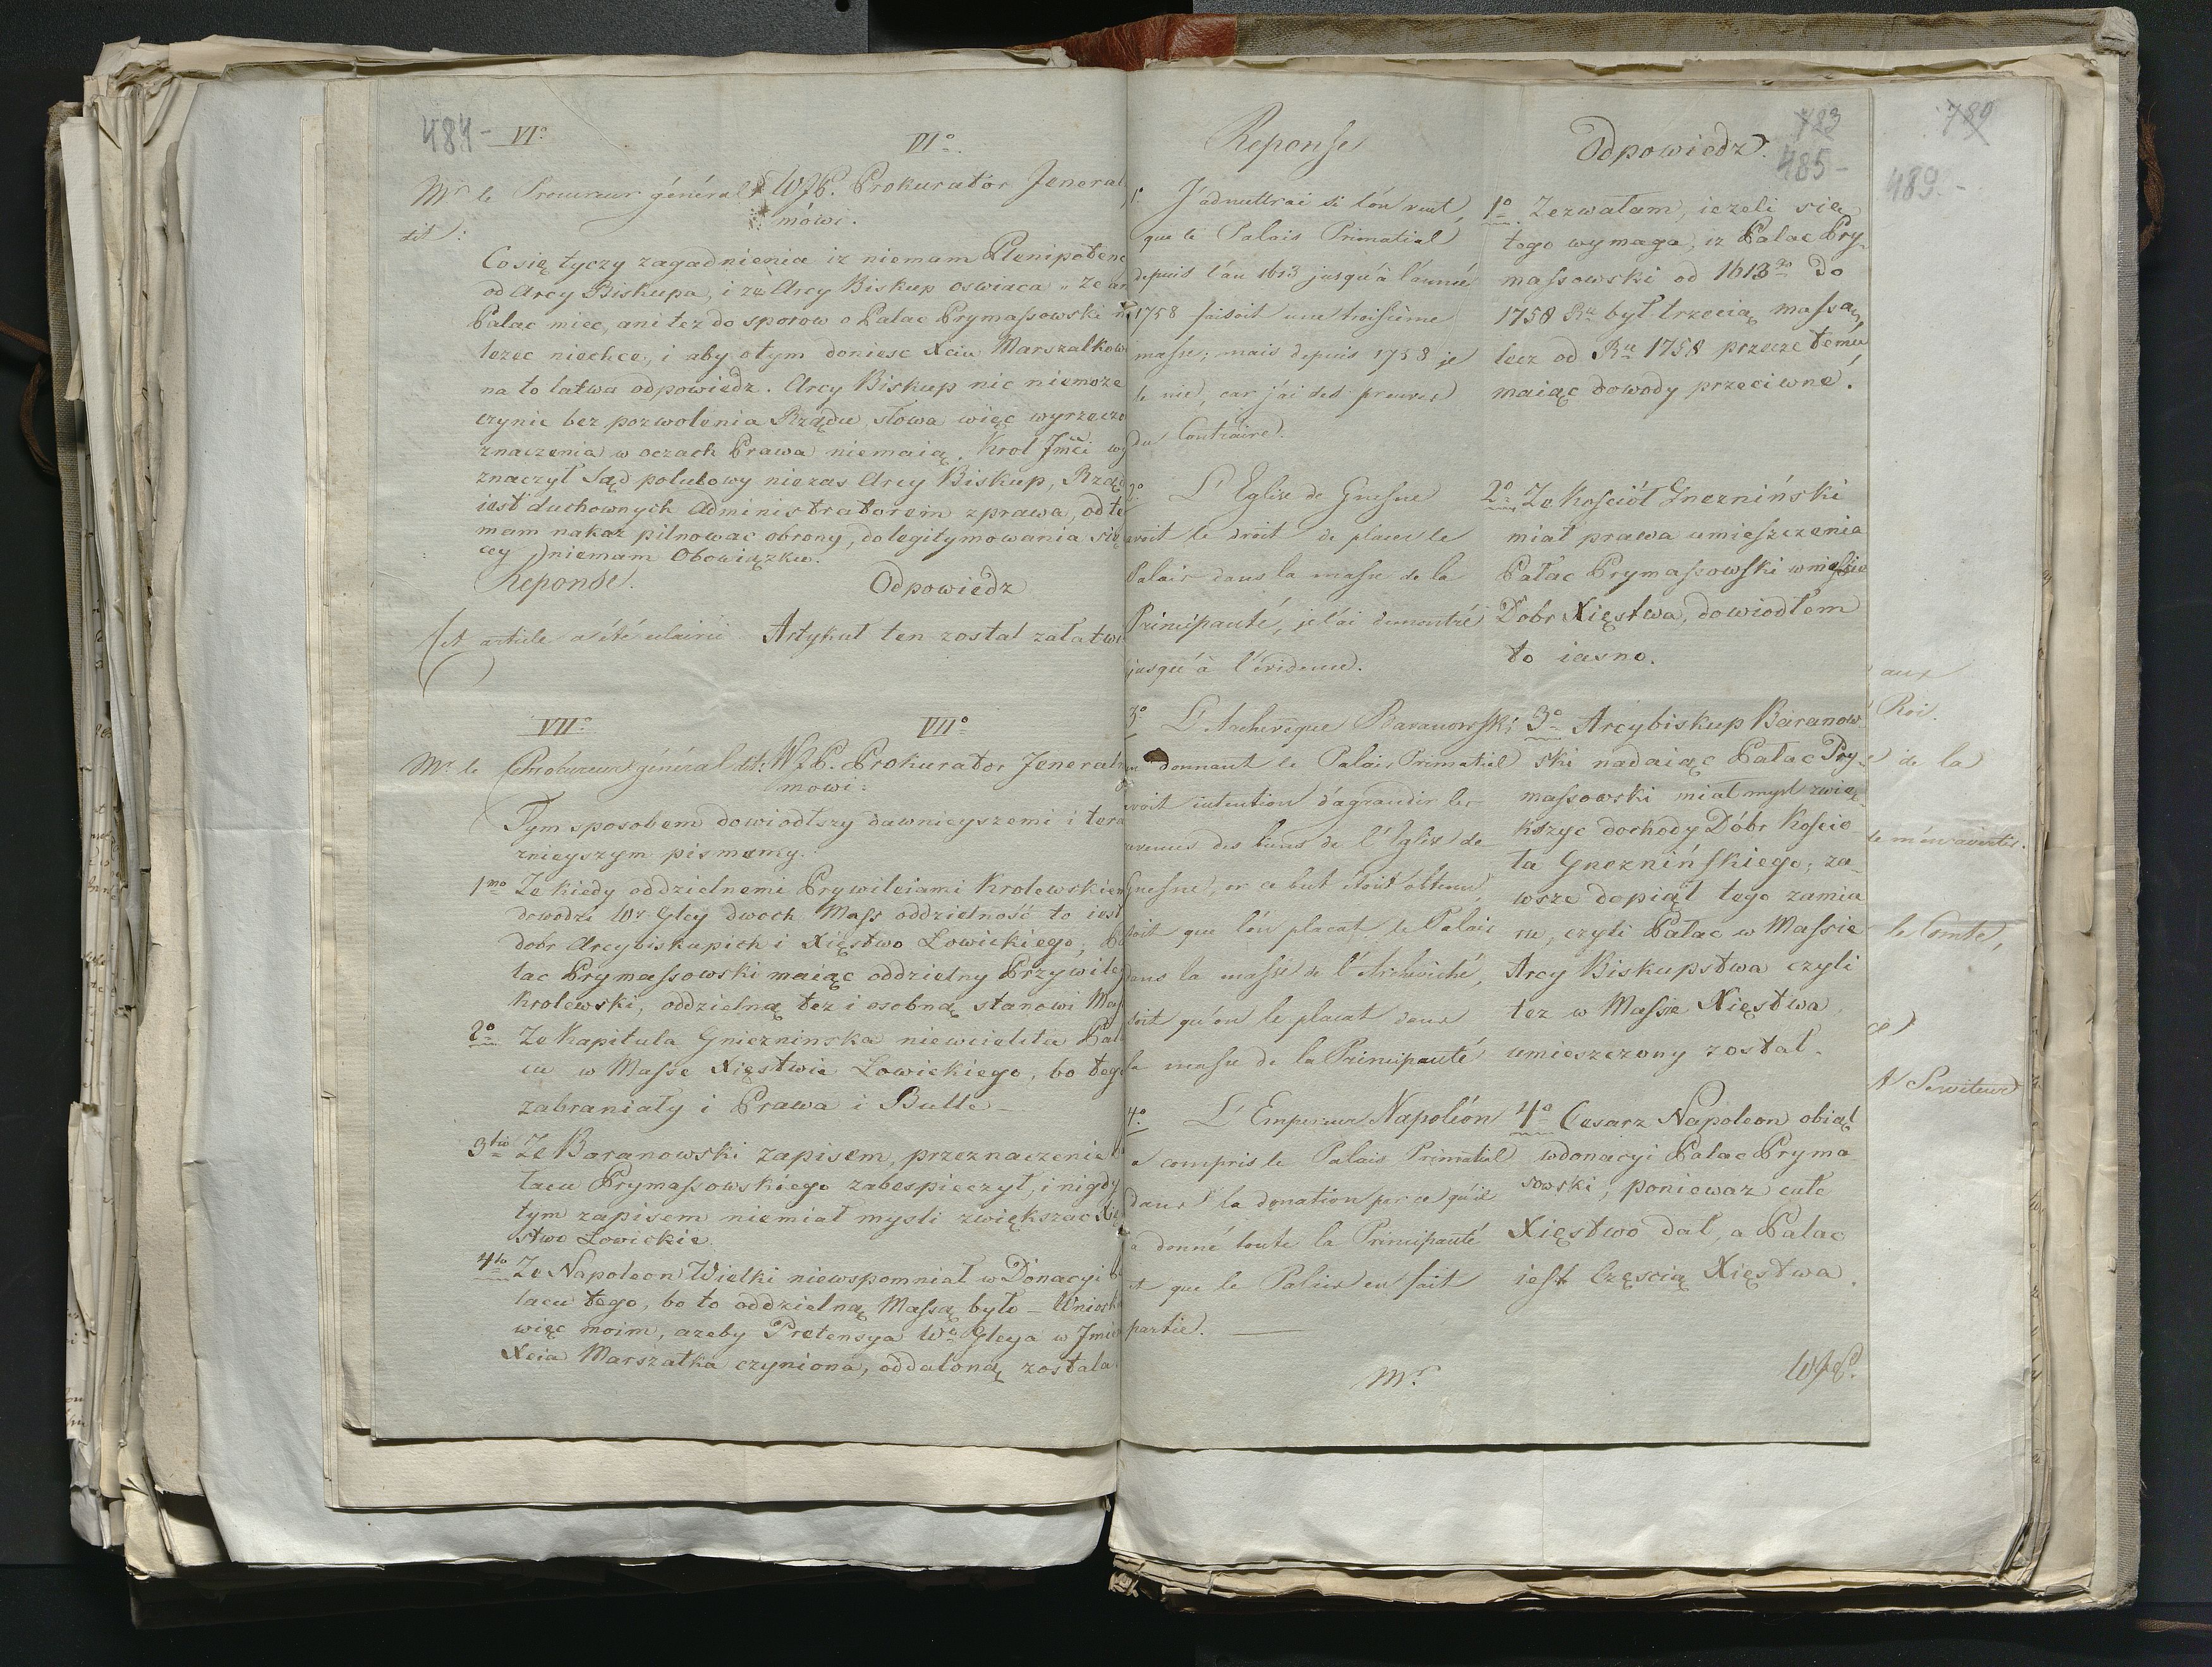 484-
VI°
VI°
Mr. le Procureur général
dit:
WJP. Prokurator Jeneral
mówi.
Co się tyczy zagadnienia iz niemam Plenipotenc
od Arcy Biskupa, i że Arcy Biskup oswiaca „ze an
Palac miec, ani tez do sporow o Palac Prymassowski n
lezec niechce, i aby o tym doniesc Xciu Marszalkow
na to łatwa odpowiedz. Arcy Biskup nic niemoze
czynic bez pozwolenia Rządu, słowa więc wyrzecze
znaczenia w oczach Prawa niemaią. Krol Jmci wy
znaczył Sąd polubowy niezas Arcy Biskup, Rzą
iest duchownych Administratorem z prawa, od te
mam nakaz pilnowac obrony, do legitymowania się
niemam Obowiązku.
Reponse.
Odpowiedz
Cet article a été éclairci
Artykuł ten został załatwi
VII°
VII°
Mr. le Procureur général dit:
WJP. Prokurator Jeneral
mowi:
Tym sposobem dowiodłszy dawnieyszemi i tera
znieyszym pismemy.
1mo Ze kiedy oddzielnemi Prywileiami Krolewskiem
dowodzi Wr Gley dwoch Mass oddzielność to iest
dobr Arcybiskupich i Xięstwo Lowickiego, Pa
lac Prymassowski maiąc oddzielny Przywiley
Krolewski, oddzielną tez i osobną stanowi Mas
2o Ze Kapitula Gnieznińska niewcieliła Pał
cu w Massę Xięstwie Lowickiego, bo tego
zabraniały i Prawa i Bulle -
3tio Ze Baranowski zapisem, przeznaczenie
łacu Prymassowskiego zabespieczył, i nigdy
tym zapisem niemiał mysli zwiększac Xię
stwo Lowickie.
4to Ze Napoleon Wielki niewspomniał w Donacyi
lacu tego, bo to oddzielną Massą było - Wniosk
więc moim, azeby Pretensya Wo Gleya w Jmie
Xcia Marszałka czyniona, oddaloną została.
Reponse
Odpowiedz.
723
485-
789
489.-
1° J'admettrai si l'on veut,
que le Palais Primatial
depuis l'an 1613 jusqu'à l'année
1758 faisoit une troisième
masse; mais depuis 1758 je
le nie, car j'ai des preuves
du Contraire.
1° Zezwalam, iezeli się
tego wymaga, iz Palac Pry-
massowski od 1613go do
1758 Ru był trzecią massą,
lecz od Ru 1758 przeczę temu,
maiąc dowody przeciwne.
2° L'Eglise de Gnesne
avoit le droit de placer le
Palais dans la masse de la
Principauté, je l'ai demontré
jusqu'à l'évidence.
2° Ze Kosciół Gnezniński
miał prawa umieszczenia
Pałac Prymassowski w massie
Dobr Xięstwa, dowiodłem
to iasno.
3° L'Archevêque Baranowski
en donnant le Palais Primatial
avoit intention d'agrandir les
revenus des biens de l'Eglise de
Gnesne, or ce but étoit obtenu,
soit que l'on placat le Palais
dans la masse de l'Archevéché,
soit qu'on le placat dans
la masse de la Principauté
3° Arcybiskup Baranow-
ski nadaiąc Pałac Pry-
massowski miał mysl zwię-
kszyc dochody Dóbr Koscio-
ła Gneznińskiego; za-
wsze dopiął tego zamia
ru, czyli Pałac w Massie
Arcy Biskupstwa czyli
tez w Massie Xięstwa
umieszczony został.
4° L'Empereur Napoléon
a compris le Palais Primatial
dans la donation parce qu'il
a donné toute la Principauté
et que le Palais en fait
partie.
4° Cesarz Napoleon obiął
w donacyi Palac Pryma
sowski, poniewaz całe
Xięstwo dał, a Palac
iest Częscią Xięstwa.
Mr.
WJP.
aux
Roi.
de la
le Comte,
Serviteur